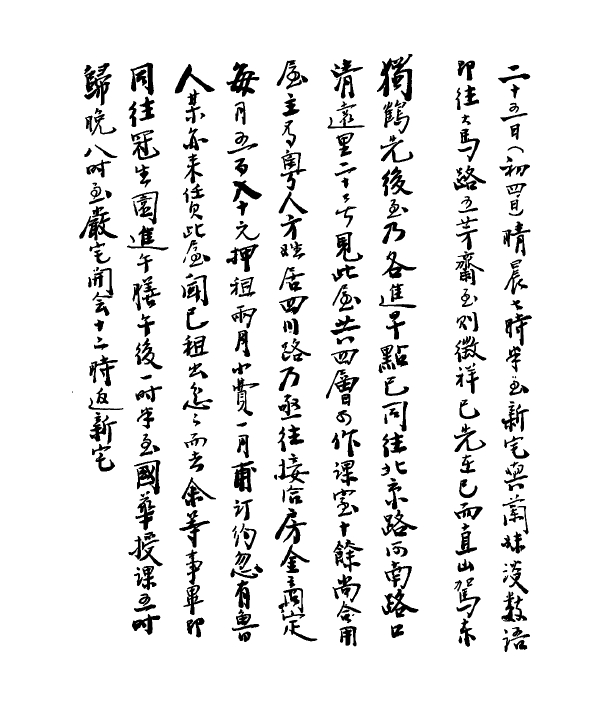 二十五日(初四日)晴晨七時半至新宅與蘭妹談數語
即往大馬路五芳齋至則徵祥已先在已而直山駕馬來
獨鶴先後至乃各進早點已同往北京路河南路口
清遠里二十六号見此屋共四層可作課室十餘尚合用
屋主為粵人方姓居四川路乃亟往接洽房金商定
每月五百八十元押租兩月小費一月甫訂約忽有魯
人某亦來賃此屋聞已租出怱々而去余等事畢即
同往冠生園進午膳午後一时半至國華授課五时
歸晚八时至嚴宅開会十二時返新宅